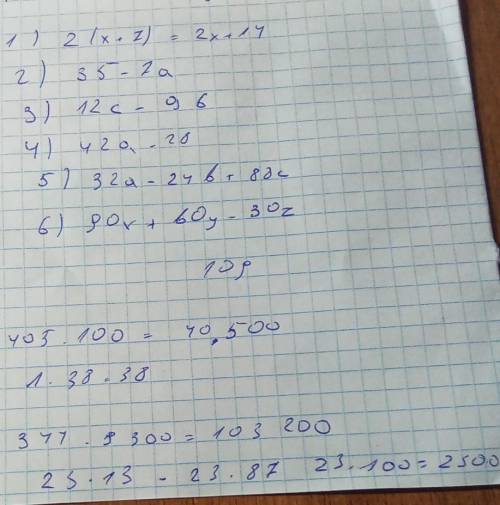 1) 2(x+7) = 2x+14
2) 35-7a
3) 12c - 96
4) 42a - 28
5) 32a - 24b + 88c
6) 90x + 60y - 30z
109
405 . 100 = 40.500
1. 38 . 38
23 . 13 - 23 . 87 23 . 100 = 2300